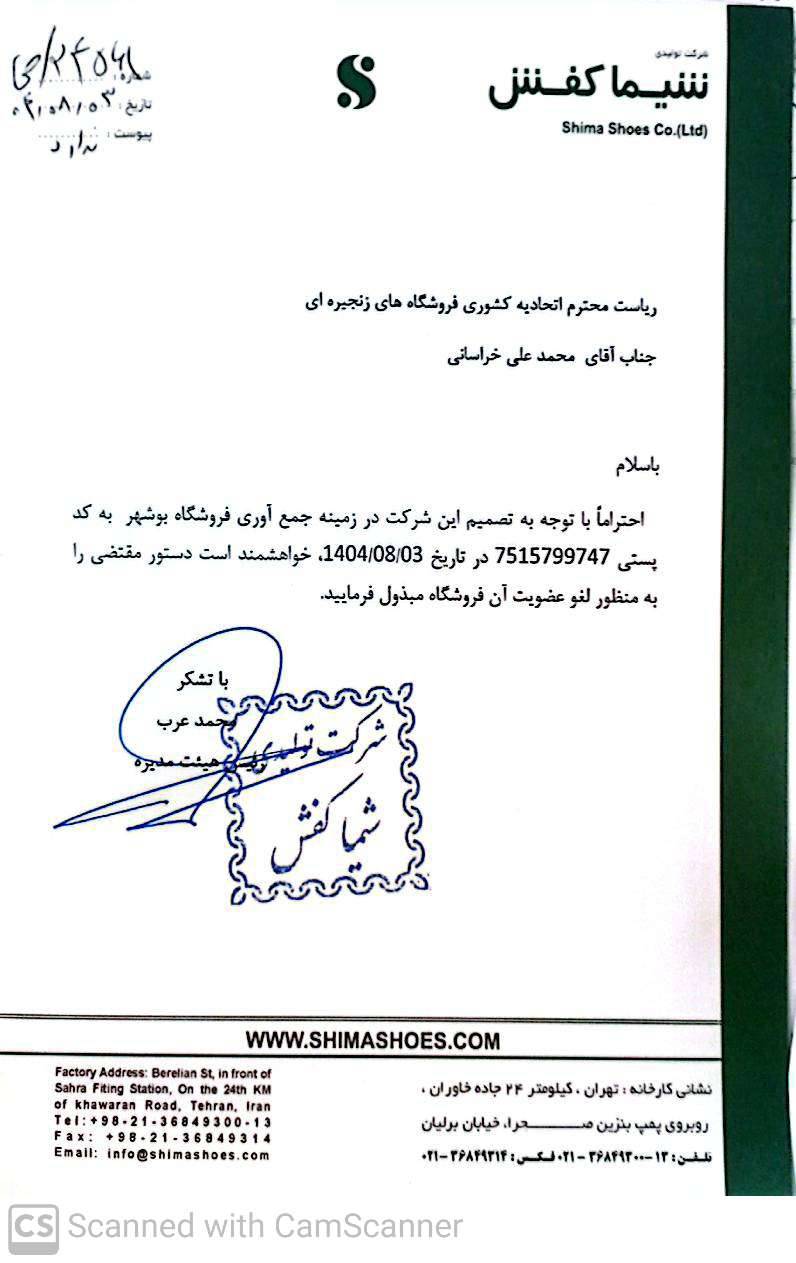 شرکت تولیدی
شیما کفش
Shima Shoes Co.(Ltd)
شماره:
تاریخ: ۰۴/۰۸/۰۳
پیوست: ندارد
ریاست محترم اتحادیه کشوری فروشگاه های زنجیره ای
جناب آقای محمد علی خراسانی
باسلام
احتراماً با توجه به تصمیم این شرکت در زمینه جمع آوری فروشگاه بوشهر به کد
پستی 7515799747 در تاریخ 1404/08/03، خواهشمند است دستور مقتضی را
به منظور لغو عضویت آن فروشگاه مبذول فرمایید.
با تشکر
محمد عرب
رئیس هیئت مدیره
شرکت تولیدی
شیما کفش
WWW.SHIMASHOES.COM
نشانی کارخانه : تهران ، کیلومتر ۲۴ جاده خاوران ،
روبروی پمپ بنزین صحرا، خیابان برلیان
تلفن: ۱۳-۳۶۸۴۹۳۰۰-۰۲۱ فکس: ۳۶۸۴۹۳۱۴-۰۲۱
Factory Address: Berelian St, in front of
Sahra Fiting Station, On the 24th KM
of khawaran Road, Tehran, Iran
Tel:+98-21-36849300-13
Fax: +98-21-36849314
Email: info@shimashoes.com
CS Scanned with CamScanner